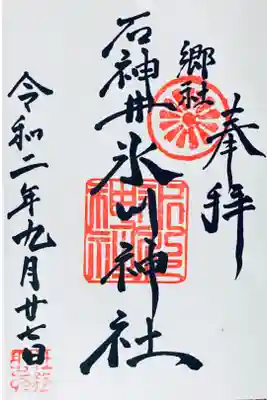 奉拝
郷社
石神井氷川神社
令和二年九月廿七日